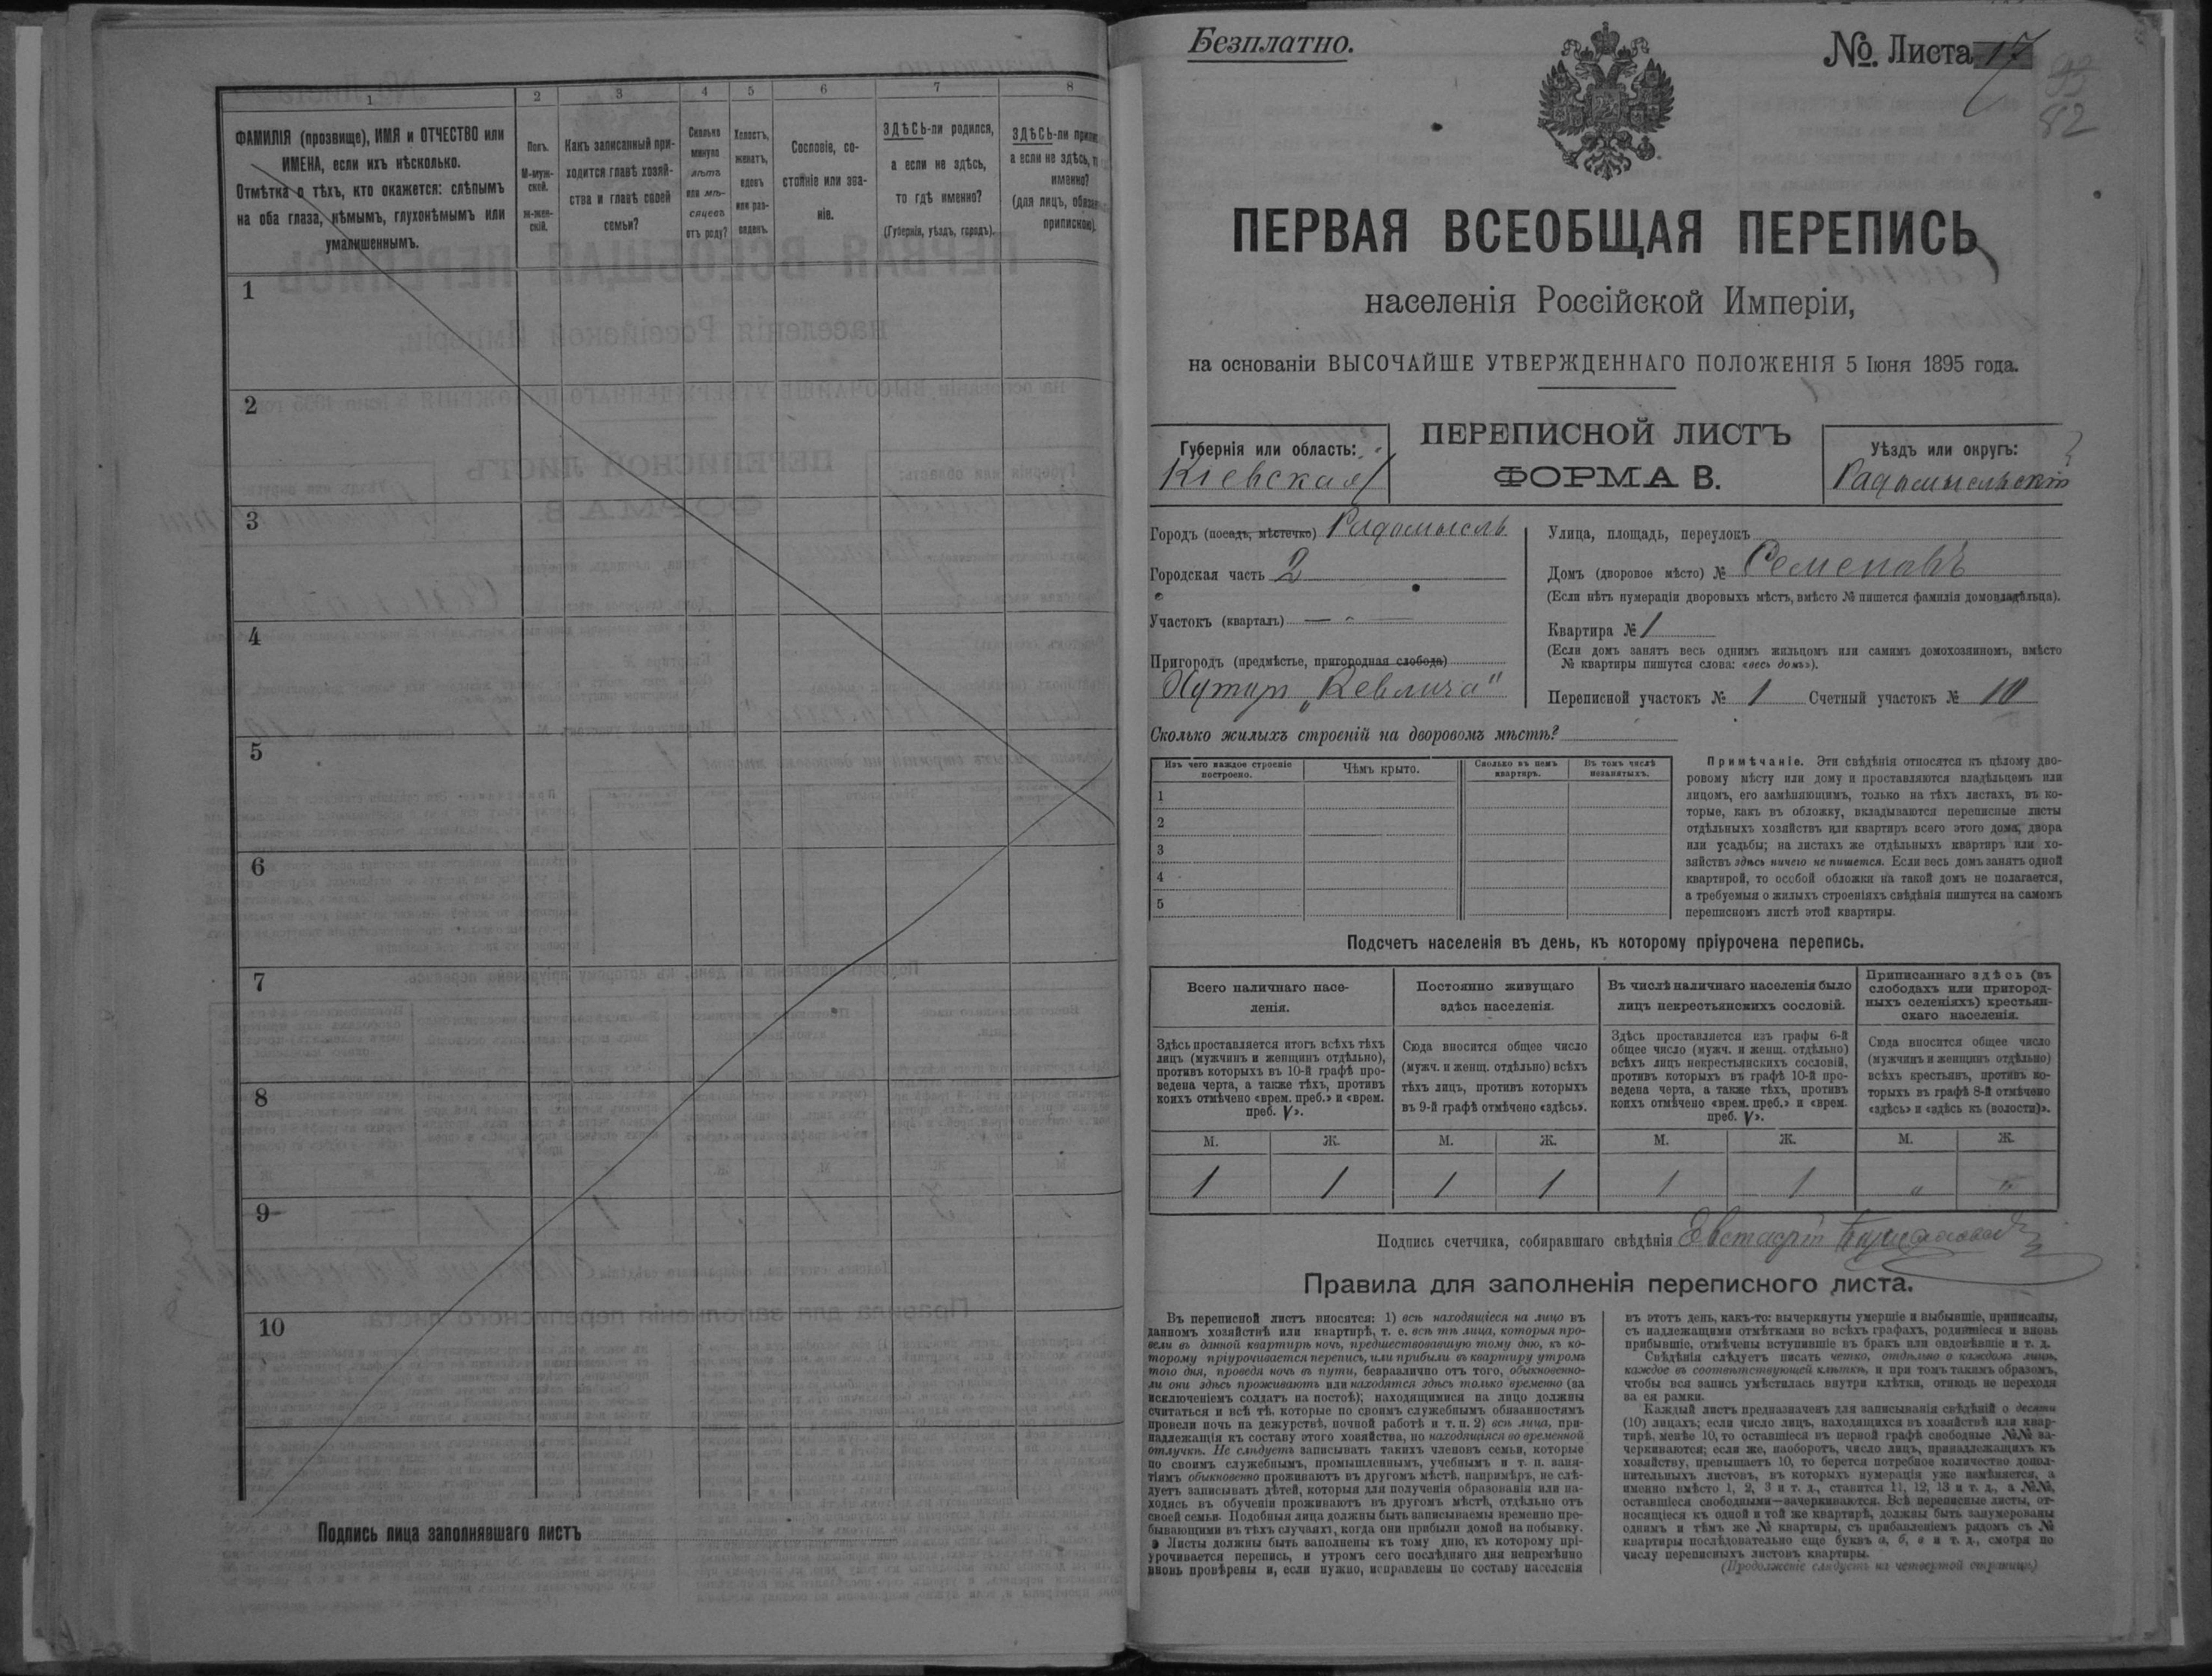 1
2
3
4
5
6
7
8
ФАМИЛІЯ (прозвище), ИМЯ и ОТЧЕСТВО или
ИМЕНА, если ихъ нѣсколько.
Отмѣтка о тѣхъ, кто окажется: слѣпымъ
на оба глаза, нѣмымъ, глухонѣмымъ или
умалишеннымъ.
Полъ.
М-муж-
ской.
ж-жен-
скій.
Какъ записанный при-
ходится главѣ хозяй-
ства и главѣ своей
семьи?
Сколько
минуло
лѣтъ
или мѣ-
сяцевъ
отъ роду?
Холостъ,
женатъ,
вдовъ
или раз-
веденъ.
Сословіе, со-
стояніе или зва-
ніе.
ЗДѢСЬ-ли родился,
а если не здѣсь,
то гдѣ именно?
(Губернія, уѣздъ, городъ).
ЗДѢСЬ-ли
а если не здѣсь,
именно?
(для лицъ,
припискою).
1
2
3
4
5
6
7
8
9
10
Подпись лица заполнявшаго листъ
Безплатно.
№. Листа 17
93
82
ПЕРВАЯ ВСЕОБЩАЯ ПЕРЕПИСЬ
населенія Россійской Имперіи,
на основаніи ВЫСОЧАЙШЕ УТВЕРЖДЕННАГО ПОЛОЖЕНІЯ 5 Іюня 1895 года.
ПЕРЕПИСНОЙ ЛИСТЪ
ФОРМА В.
Губернія или область:
Кіевская
Уѣздъ или округъ:
Радомысльскій
Городъ (посадъ, мѣстечко) Радомысль
Городская часть 2
Участокъ (кварталъ) — —
Пригородъ (предмѣстье, пригородная слобода)
Хуторъ
Улица, площадь, переулокъ
Домъ (дворовое мѣсто) № Семеновъ
(Если нѣтъ нумераціи дворовыхъ мѣстъ, вмѣсто № пишется фамилія домовладѣльца).
Квартира № 1
(Если домъ занятъ весь однимъ жильцомъ или самимъ домохозяиномъ, вмѣсто
№ квартиры пишутся слова: «весь домъ»).
Переписной участокъ № 1 Счетный участокъ № 10
Сколько жилыхъ строеній на дворовомъ мѣстѣ?
Изъ чего каждое строеніе
построено.
Чѣмъ крыто.
Сколько въ немъ
квартиръ.
Въ томъ числѣ
незанятыхъ.
1
2
3
4
5
Примѣчаніе. Эти свѣдѣнія относятся къ цѣлому дво-
ровому мѣсту или дому и проставляются владѣльцемъ или
лицомъ, его замѣняющимъ, только на тѣхъ листахъ, въ ко-
торые, какъ въ обложку, вкладываются переписные листы
отдѣльныхъ хозяйствъ или квартиръ всего этого дома, двора
или усадьбы; на листахъ же отдѣльныхъ квартиръ или хо-
зяйствъ здѣсь ничего не пишется. Если весь домъ занятъ одной
квартирой, то особой обложки на такой домъ не полагается,
а требуемыя о жилыхъ строеніяхъ свѣдѣнія пишутся на самомъ
переписномъ листѣ этой квартиры.
Подсчетъ населенія въ день, къ которому пріурочена перепись.
Всего наличнаго насе-
ленія.
Постоянно живущаго
здѣсь населенія.
Въ числѣ наличнаго населенія было
лицъ некрестьянскихъ сословій.
Приписаннаго здѣсь (въ
слободахъ или пригород-
ныхъ селеніяхъ) крестьян-
скаго населенія.
Здѣсь проставляется итогъ всѣхъ тѣхъ
лицъ (мужчинъ и женщинъ отдѣльно),
противъ которыхъ въ 10-й графѣ про-
ведена черта, а также тѣхъ, противъ
коихъ отмѣчено «врем. преб.» и «врем.
преб. V».
Сюда вносится общее число
(мужч. и женщ. отдѣльно) всѣхъ
тѣхъ лицъ, противъ которыхъ
въ 9-й графѣ отмѣчено «здѣсь».
Здѣсь проставляется изъ графы 6-й
общее число (мужч. и женщ. отдѣльно)
всѣхъ лицъ некрестьянскихъ сословій,
противъ которыхъ въ графѣ 10-й про-
ведена черта, а также тѣхъ, противъ
коихъ отмѣчено «врем. преб.» и «врем.
преб. V».
Сюда вносится общее число
(мужчинъ и женщинъ отдѣльно)
всѣхъ крестьянъ, противъ ко-
торыхъ въ графѣ 8-й отмѣчено
«здѣсь» и «здѣсь къ (волости)».
М. Ж. М. Ж. М. Ж. М. Ж.
1 1 1 1 1 1 " "
Подпись счетчика, собиравшаго свѣдѣнія Евстафій
Правила для заполненія переписного листа.
Въ переписной листъ вносятся: 1) всѣ находящіеся на лицо въ
данномъ хозяйствѣ или квартирѣ, т. е. всѣ тѣ лица, которыя про-
вели въ данной квартирѣ ночь, предшествовавшую тому дню, къ ко-
торому пріурочивается перепись, или прибыли въ квартиру утромъ
того дня, проведя ночь въ пути, безразлично отъ того, обыкновенно-
ли они здѣсь проживаютъ или находятся здѣсь только временно (за
исключеніемъ солдатъ на постоѣ); находящимися на лицо должны
считаться и всѣ тѣ, которые по своимъ служебнымъ обязанностямъ
провели ночь на дежурствѣ, ночной работѣ и т. п. 2) всѣ лица, при-
надлежащія къ составу этого хозяйства, но находящіяся во временной
отлучкѣ. Не слѣдуетъ записывать такихъ членовъ семьи, которые
по своимъ служебнымъ, промышленнымъ, учебнымъ и т. п. заня-
тіямъ обыкновенно проживаютъ въ другомъ мѣстѣ, напримѣръ, не слѣ-
дуетъ записывать дѣтей, которыя для полученія образованія или на-
ходясь въ обученіи проживаютъ въ другомъ мѣстѣ, отдѣльно отъ
своей семьи. Подобныя лица должны быть записываемы временно пре-
бывающими въ тѣхъ случаяхъ, когда они прибыли домой на побывку.
Листы должны быть заполнены къ тому дню, къ которому прі-
урочивается перепись, и утромъ сего послѣдняго дня непремѣнно
вновь провѣрены и, если нужно, исправлены по составу населенія
въ этотъ день, какъ-то: вычеркнуты умершіе и выбывшіе, приписаны,
съ надлежащими отмѣтками во всѣхъ графахъ, родившіеся и вновь
прибывшіе, отмѣчены вступившіе въ бракъ или овдовѣвшіе и т. д.
Свѣдѣнія слѣдуетъ писать четко, отдѣльно о каждомъ лицѣ,
каждое въ соотвѣтствующей клѣткѣ, и при томъ такимъ образомъ,
чтобы вся запись умѣстилась внутри клѣтки, отнюдь не переходя
за ея рамки.
Каждый листъ предназначенъ для записыванія свѣдѣній о десяти
(10) лицахъ; если число лицъ, находящихся въ хозяйствѣ или квар-
тирѣ, менѣе 10, то оставшіеся въ первой графѣ свободные №№ за-
черкиваются; если же, наоборотъ, число лицъ, принадлежащихъ къ
хозяйству, превышаетъ 10, то берется потребное количество допол-
нительныхъ листовъ, въ которыхъ нумерація уже измѣняется, а
именно вмѣсто 1, 2, 3 и т. д., ставится 11, 12, 13 и т. д., а №№,
оставшіеся свободными—зачеркиваются. Всѣ переписные листы, от-
носящіеся къ одной и той же квартирѣ, должны быть занумерованы
однимъ и тѣмъ же № квартиры, съ прибавленіемъ рядомъ съ №
квартиры послѣдовательно еще буквъ а, б, в и т. д., смотря по
числу переписныхъ листовъ квартиры.
(Продолженіе слѣдуетъ на четвертой страницѣ)